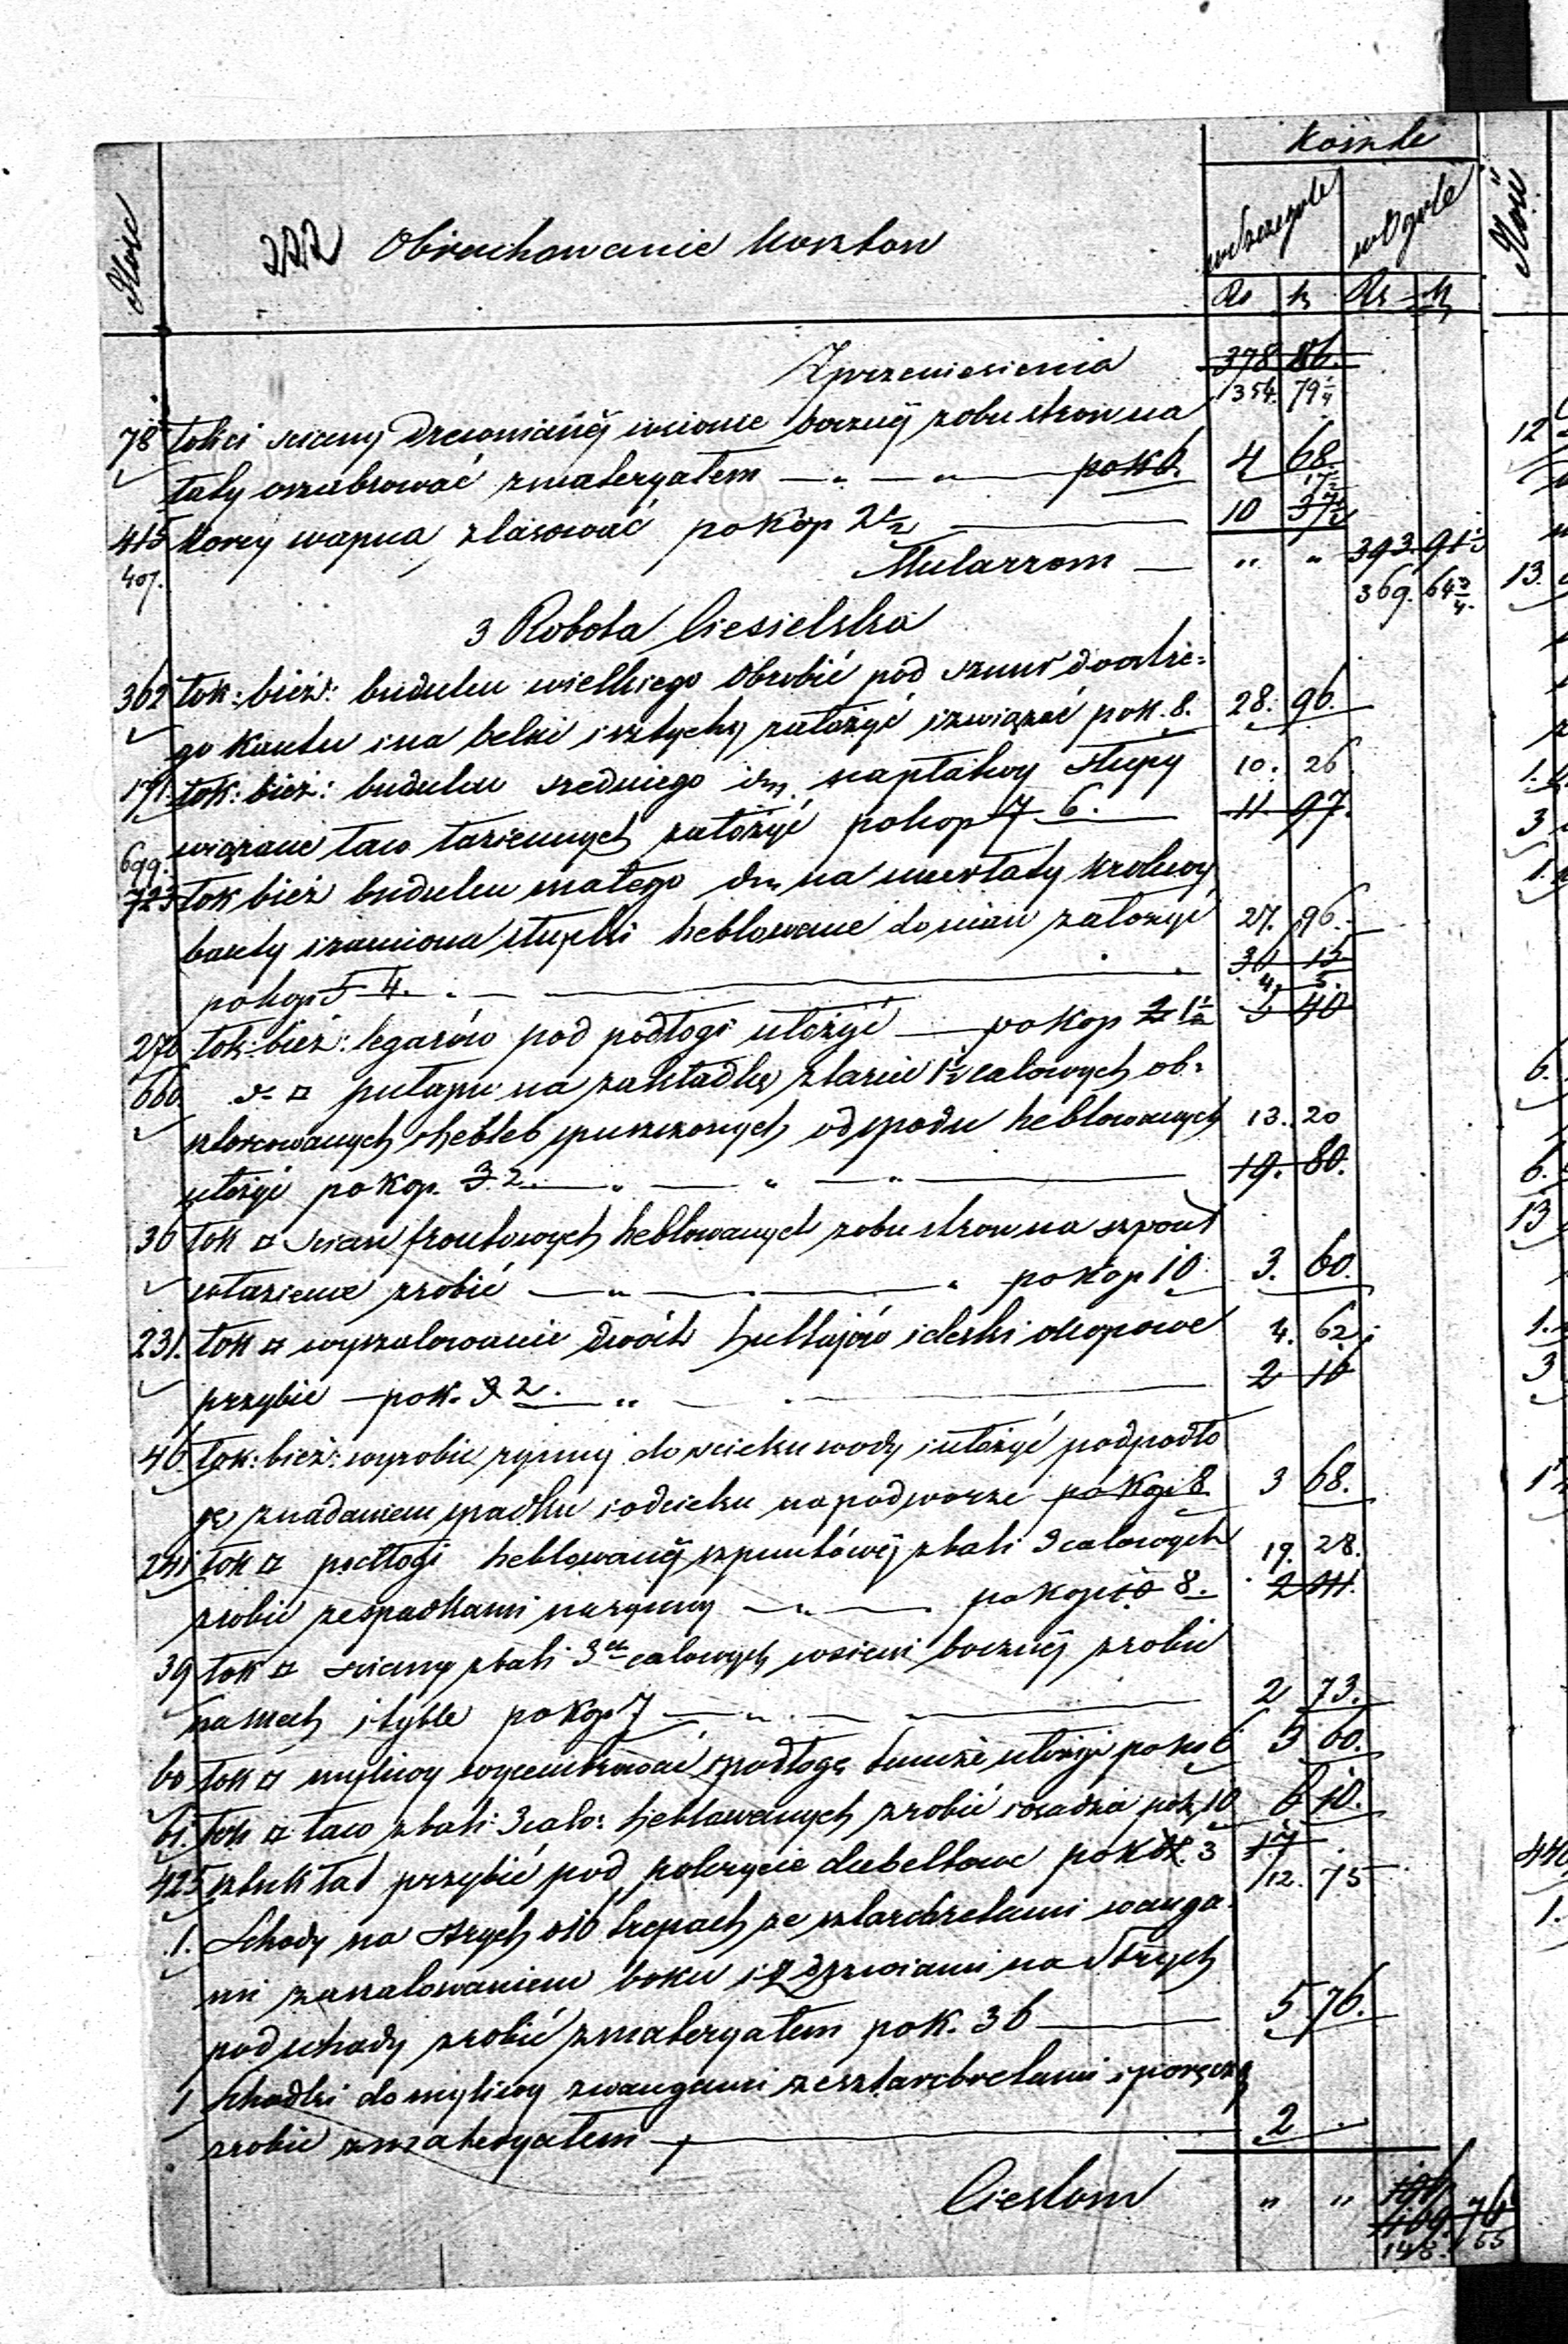 Koszta
Ilość
222 Obrachowanie kosztow
wSzczegole
wOgole
Rs k Rs k
Zprzeniesienia 378 86.
354. 79 1/4
78 łokci sciany drewnianéj wsionce boczny zobu stron na
łaty oszabrować zmateryałem — " — " — pok 6. 4 68
415 korcy wapna zlasować pokop 2 1/2 — 10 37 1/2
407. 17 1/2
Mularzom — " " 393. 91 1/2
369. 64 3/4
3 Robota Ciesielska
362 łok: bież: budulcu wielkiego obrobić pod sznur do ostre=
go kantu i na belki i sztychy założyć i związać pok. 8. 28. 96.
171. łok: bież: budulcu szedniego na płatwy słupy 10. 26
wiązane ław łaziennych założyć pokop 7 6. 11 97.
699.
723 łok bież budulcu małego dm na murłaty krokwy
banty i ramiona słupki heblowane do nian założyć 27. 96.
pokop 5 4. — 36 15
270 łok: bież: legarów pod podłogi ułożyć — pokop 2 1 1/2 5 40
4. 5.
660 d- ¤ pułapu na zakładkę zlarcic 1 1/2 calowych ob=
sztorcowanych i hebleb puszczonych od spodu heblowanych 13. 20
ułożyć pokop. 3. 2. — " — " — " — 19. 80.
36 łok ¤ scian frontowych heblowanych zobu stron na szpont
włazience zrobić — " — " pokop 10 3. 60.
231. łok ¤ wyszalowanie dwóch i deski okopowe 4. 62
przybić — pok. 3 2. — " — 2 10
46. łok: bież: wyrobić rynny do scieku wody i ułożyć podpodło
gę znadaniem spadku i odcieku na podworze pokop 8 3 68.
241 łok ¤ podłogi heblowanéj szpuntówéj zbali 3calowych 19. 28.
zrobić zespadkami narynny — " — pokop 10 8. 2 411.
39 łok ¤ sciany zbali 3ch calowych wsieni bocznéj zrobić
na mech i tyble pokop 7 — " — " — 2 73.
60 łok ¤ mylwy i podłogę tamże ułożyć pokop 6 3 60.
61. łok ¤ ław zbali 3calo: heblowanych zrobić i osadzić pok 10 6 10.
425 sztuk łat przybić pod pokrycie dubeltowe pok 4. 3 17 .
12. 75
1. Schody na strych o 16 trepach ze sztarcbretami i wanga=
mi zaszalowaniem boku i 2 drzwiami na Strych
podschody zrobić zmateryałem pok. 36 — 5 76.
1 Schodki do mylwy zwangami zesztarcbretami i poręczą
zrobić zmateryałem — 2 "
Cieslom " " 169. 76
148. 55